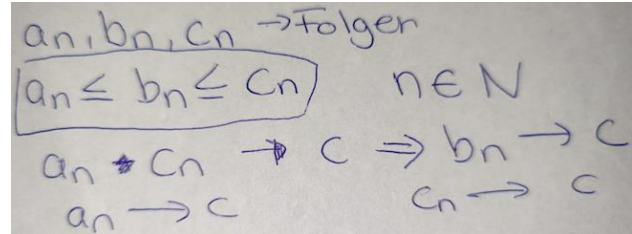 an, bn, cn → Folgen
an ≤ bn ≤ cn n ∈ N
an • cn → c ⇒ bn → c
an → c cn → c